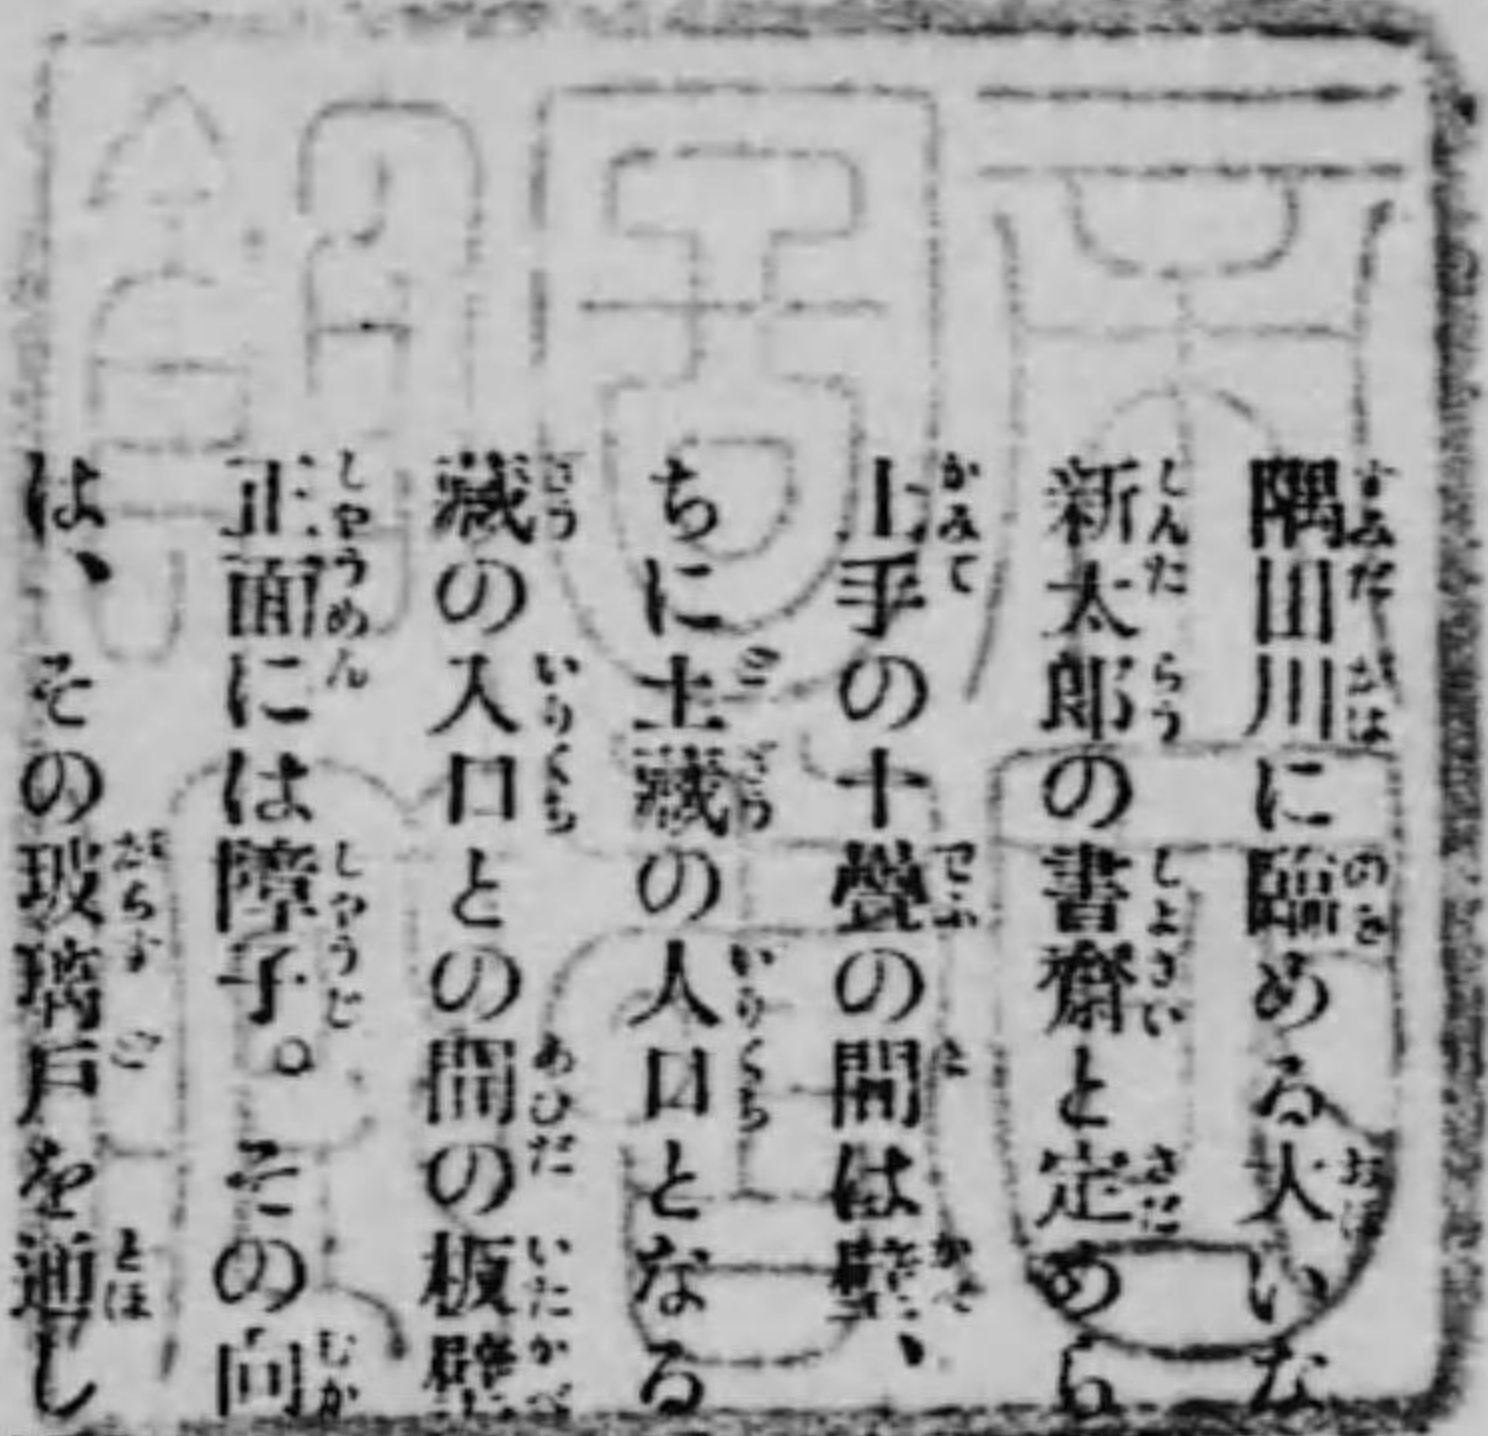 隅田川に臨める大いな
新太郎の書齋と定めら
上手の十疊の間は壁、
ちに土藏の入口となる
藏の入口との間の板壁
正面には障子。その向
は、その玻璃戸を通し